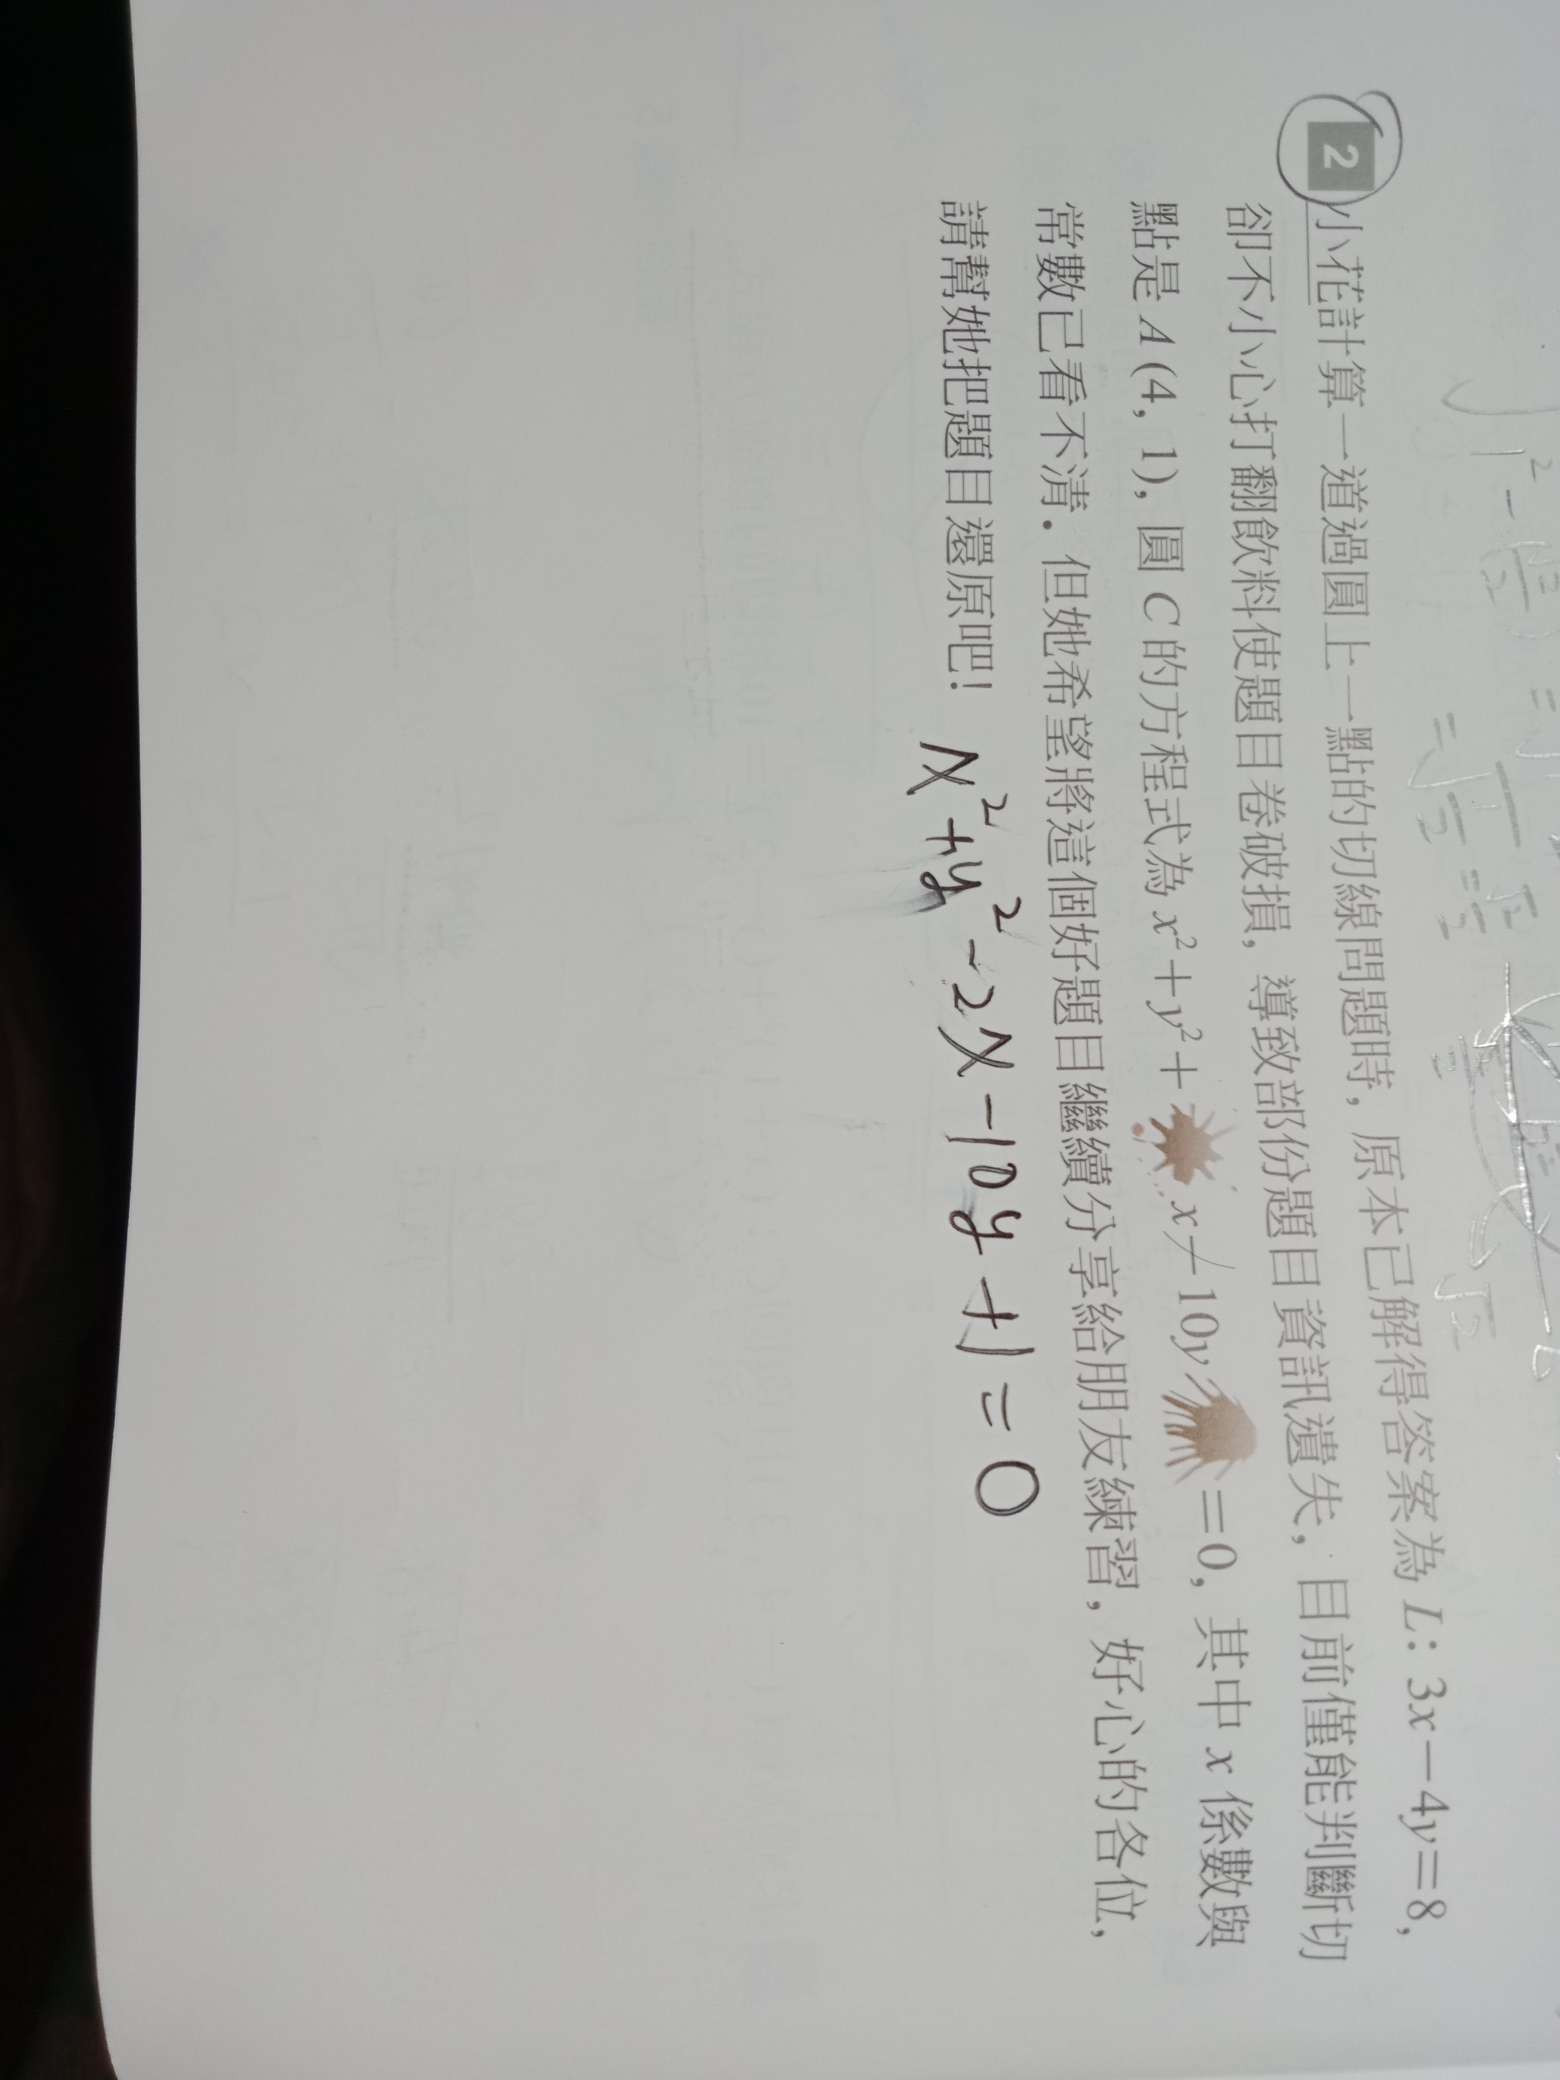 2 小花計算一道過圓上一點的切線問題時, 原本已解得答案為 L: 3x−4y=8,
卻不小心打翻飲料使題目卷破損, 導致部份題目資訊遺失, 目前僅能判斷切
點是 A (4, 1), 圓 C 的方程式為 x²+y²+ x−10y =0, 其中 x 係數與
常數已看不清. 但她希望將這個好題目繼續分享給朋友練習, 好心的各位,
請幫她把題目還原吧!
x²+y²−2x−10y+1=0